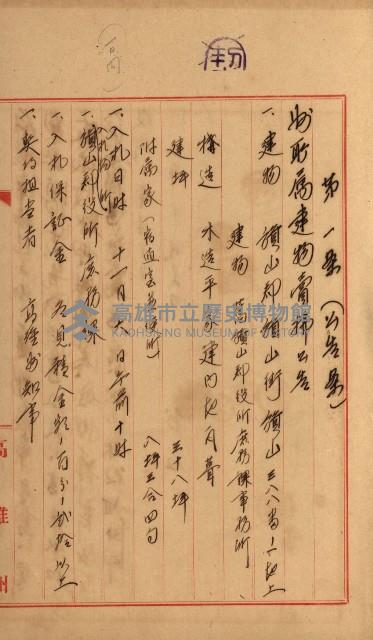 第一案（公告案）
州所属建物賣拂公告
一、建物 旗山郡旗山街旗山三八八番ノ一地上
建物 旧旗山郡役所庶務課事務所
構造 木造平家建内地瓦葺
建坪 三十八坪
附属家（宿直室及便所） 八坪三合四勺
一、入札日時 十一月六日午前十時
一、入札場所
旗山郡役所庶務課
一、入札保証金 各見積金額ノ百分ノ弐拾以上
一、契約担当者 高雄州知事
高雄市立歷史博物館
KAOHSIUNG MUSEUM OF HISTORY
高雄州